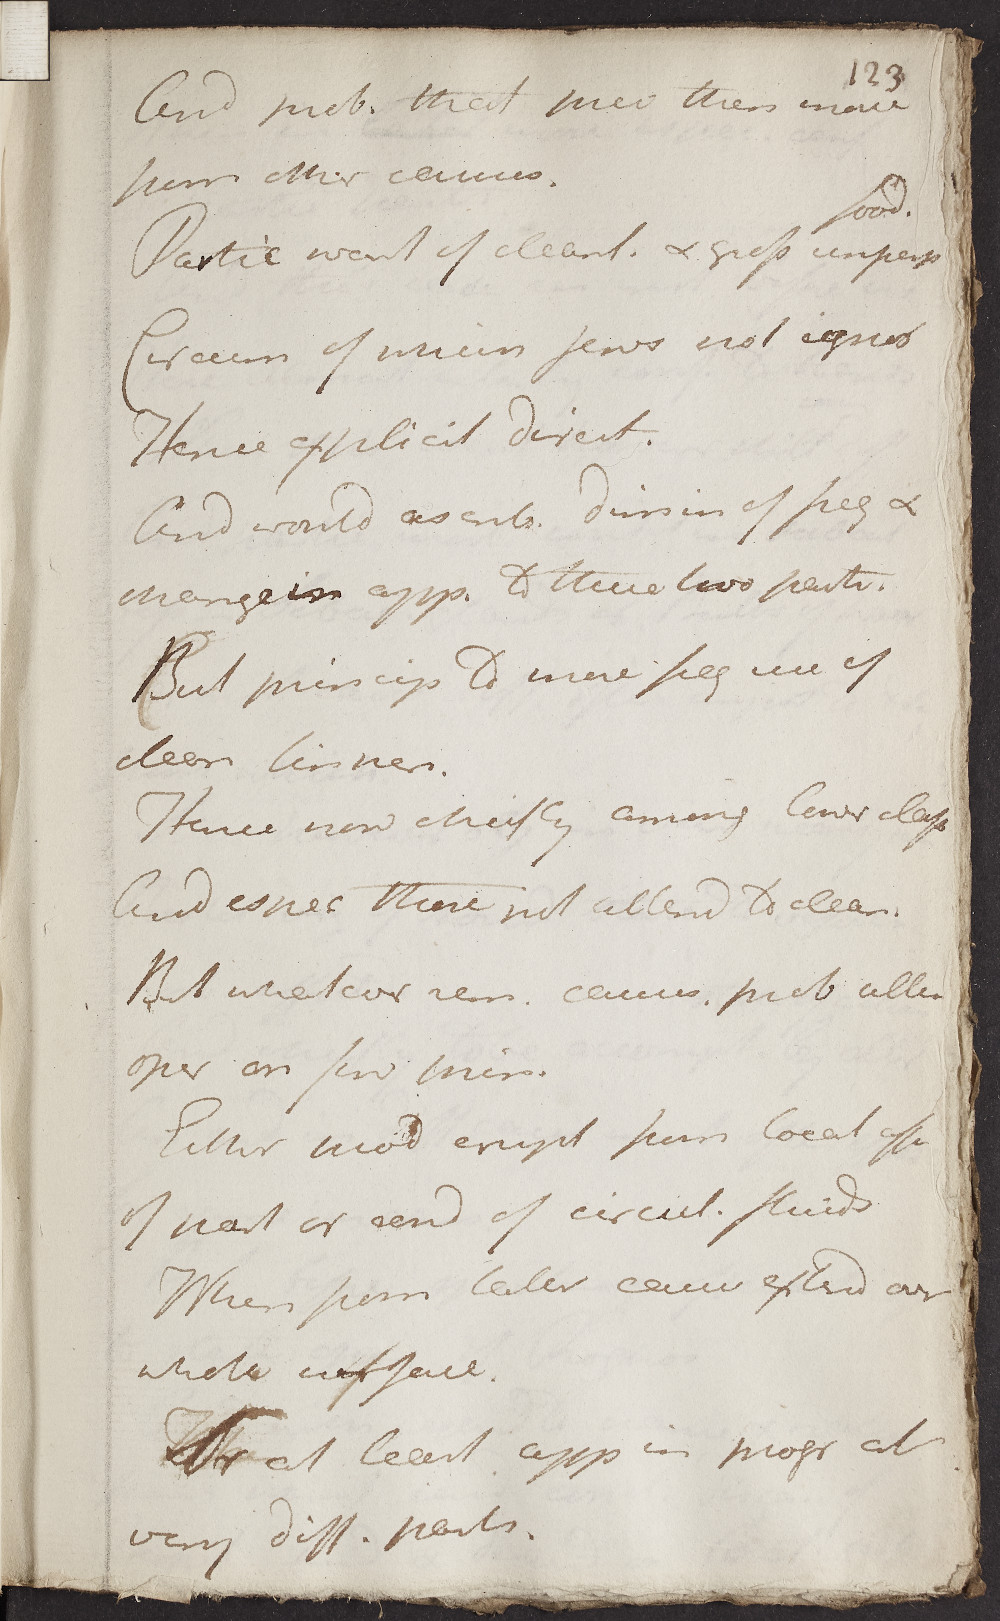 123
And prob. that prev then more
from other causes.
food.
Partic want of cleanl. & gross unpersp
Circum of which Jews not ignor
Hence explicit direct.
And would ascrib. dimin of freq &
change in app. to these two partic.
But princip to more freq use of
clean linnen.
Hence now chiefly among lower class
And espec those not attend to clean.
But whatever rem. causes. prob all
oper on few prin.
Either mod erupt from local aff
of part or cond of circul. fluids
When from latter cause extend over
whole surface.
Or at least app in progr at
very diff. parts.